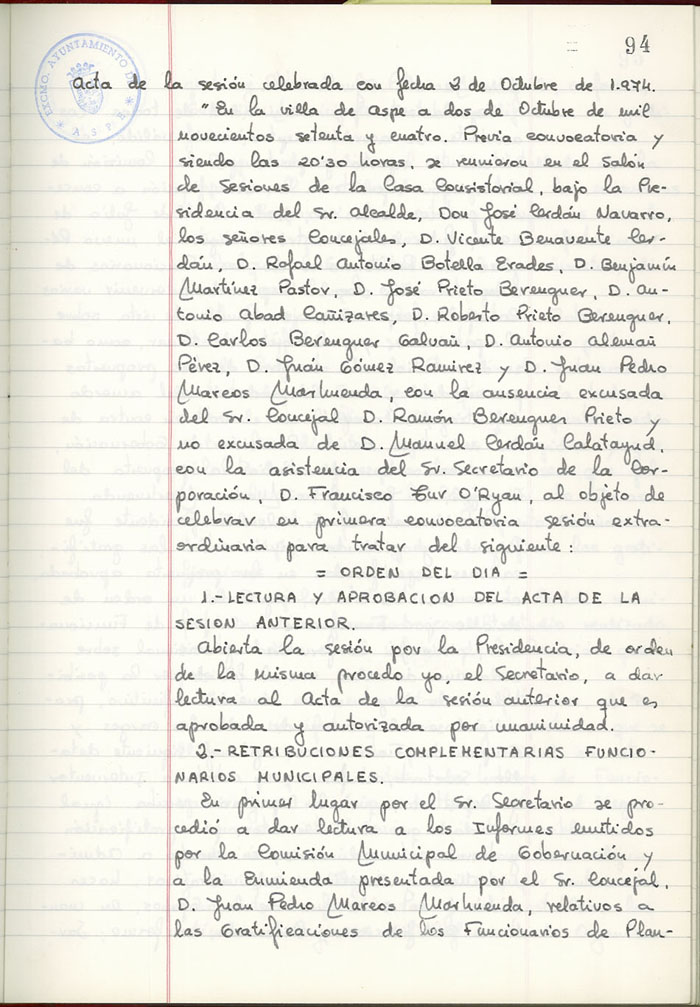 94
EXCMO. AYUNTAMIENTO D
* A.S.P.E. *
Acta de la sesión celebrada con fecha 2 de Octubre de 1.974.
"En la villa de Aspe a dos de Octubre de mil
novecientos setenta y cuatro. Previa convocatoria y
siendo las 20'30 horas, se reunieron en el Salón
de Sesiones de la Casa Consistorial, bajo la Pre-
sidencia del Sr. Alcalde, Don José Cerdán Navarro,
los señores Concejales, D. Vicente Benavente Cer-
dán, D. Rafael Antonio Botella Erades, D. Benjamín
Martínez Pastor, D. José Prieto Berenguer, D. An-
tonio Abad Cañizares, D. Roberto Prieto Berenguer,
D. Carlos Berenguer Galvañ, D. Antonio Alemañ
Pérez, D. Juán Gómez Ramirez y D. Juan Pedro
Marcos Marhuenda, con la ausencia excusada
del Sr. Concejal D. Ramón Berenguer Prieto y
no excusada de D. Manuel Cerdán Calatayud,
con la asistencia del Sr. Secretario de la Cor-
poración, D. Francisco Tur O'Ryan, al objeto de
celebrar en primera convocatoria sesión extra-
ordinaria para tratar del siguiente:
= ORDEN DEL DIA =
1.- LECTURA Y APROBACION DEL ACTA DE LA
SESION ANTERIOR.
Abierta la sesión por la Presidencia, de orden
de la misma procedo yo, el Secretario, a dar
lectura al Acta de la sesión anterior que es
aprobada y autorizada por unanimidad.
2.- RETRIBUCIONES COMPLEMENTARIAS FUNCIO-
NARIOS MUNICIPALES.
En primer lugar por el Sr. Secretario se pro-
cedió a dar lectura a los Informes emitidos
por la Comisión Municipal de Gobernación y
a la Enmienda presentada por el Sr. Concejal,
D. Juan Pedro Marcos Marhuenda, relativos a
las Gratificaciones de los Funcionarios de Plan-